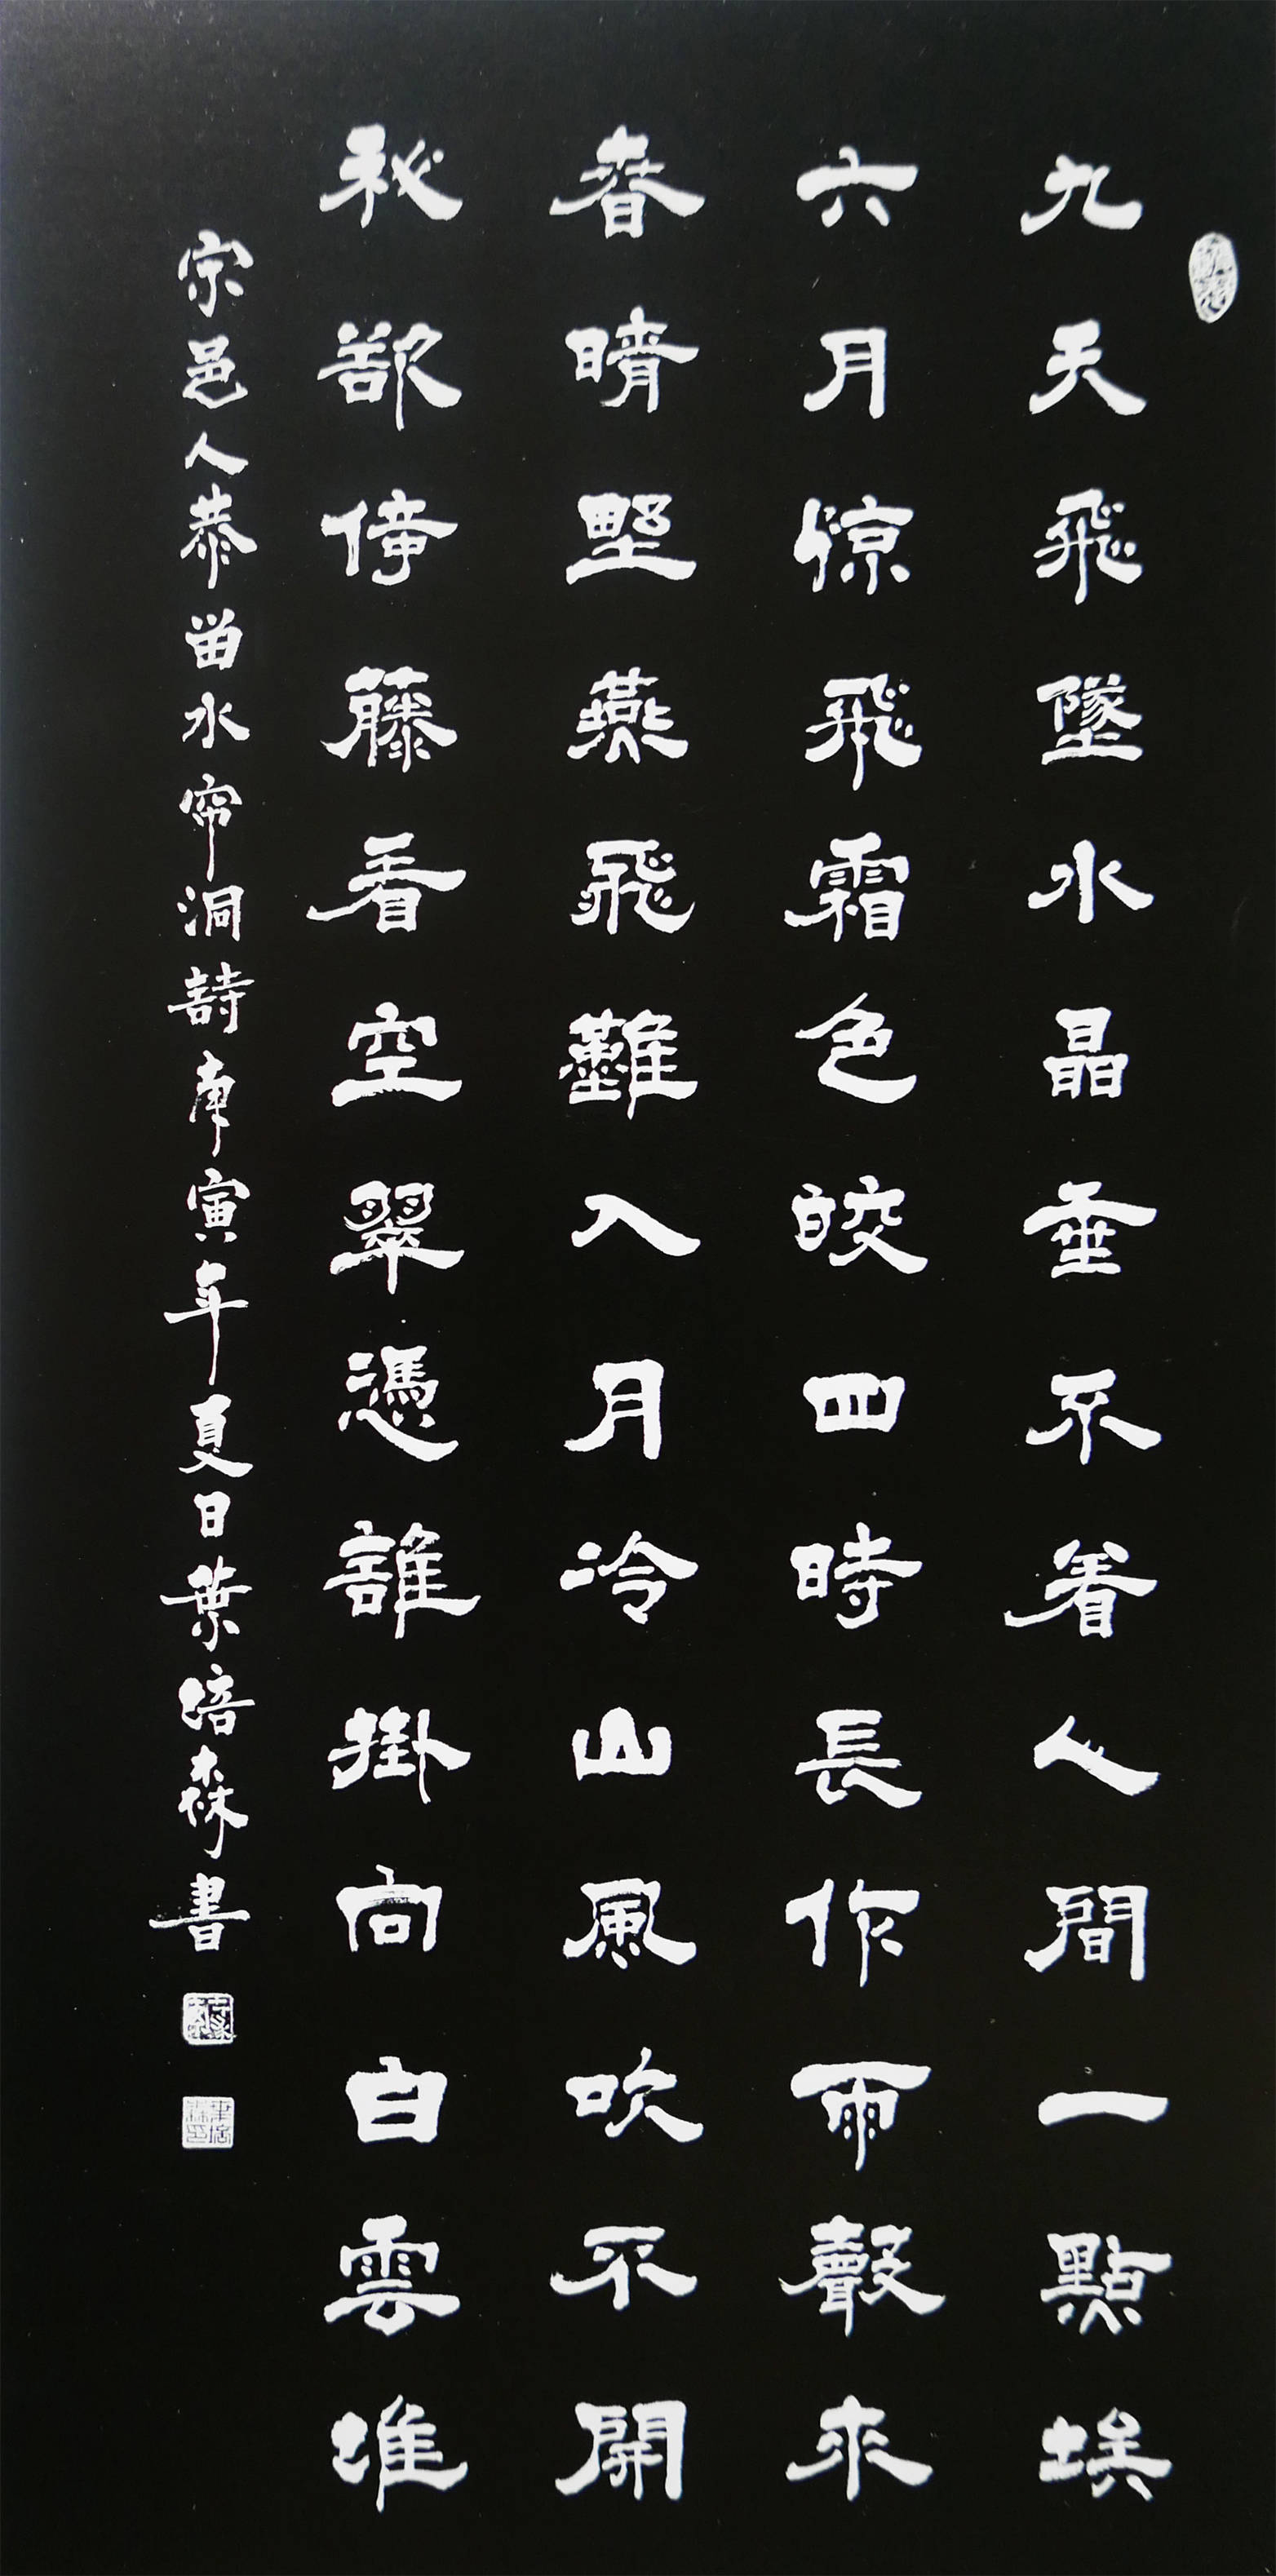 九天飛墜水晶垂不着人間一點埃
六月惊飛霜色皎四時長作雨聲來
春晴野燕飛難入月冷山風吹不開
秘欲倚藤看空翠憑誰掛向白雲堆
宗邑人恭苗水帘洞詩庚寅年夏日葉培森書